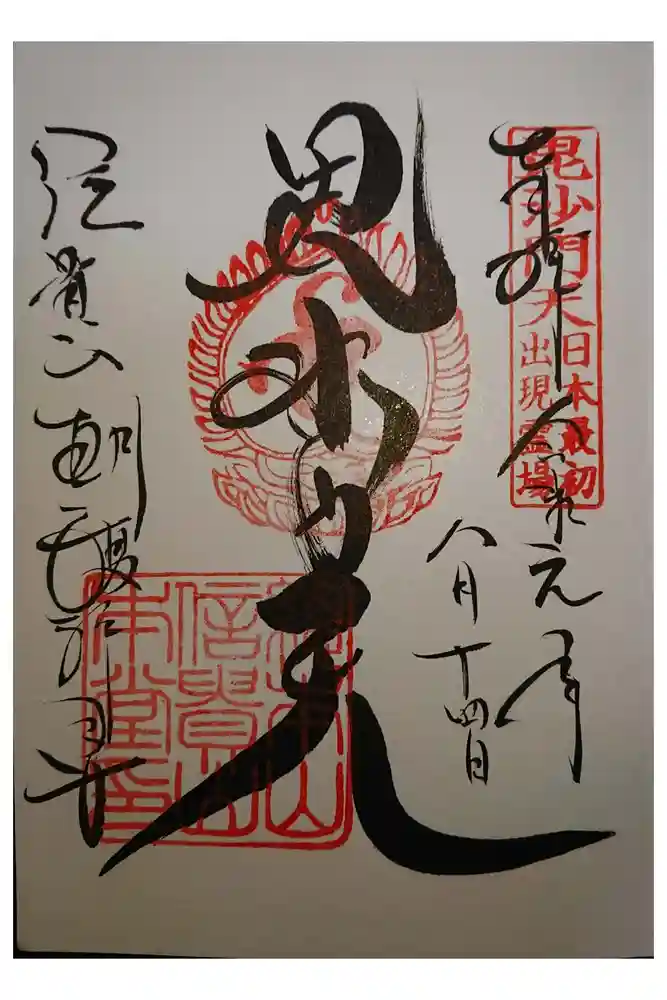 奉拝
令和元年
八月十四日
毘沙門天
日本最初
出現霊場
毘沙門天
信貴山
本堂印
信貴山朝護孫子寺